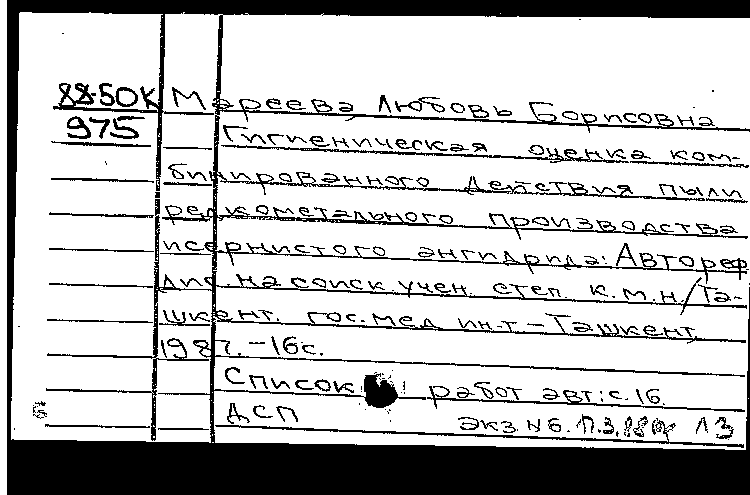 88-50К Мареева Любовь Борисовна
975 Гигиеническая оценка ком-
бинированного действия пыли
редкометального производства
и сернистого ангидрида: Автореф
дис. на соиск учен. степ. к.м.н./Та-
шкент. гос. мед ин-т. - Ташкент,
1987. - 16с.
Список работ авт: с. 16.
ДСП
6 экз №6. 17.3.88